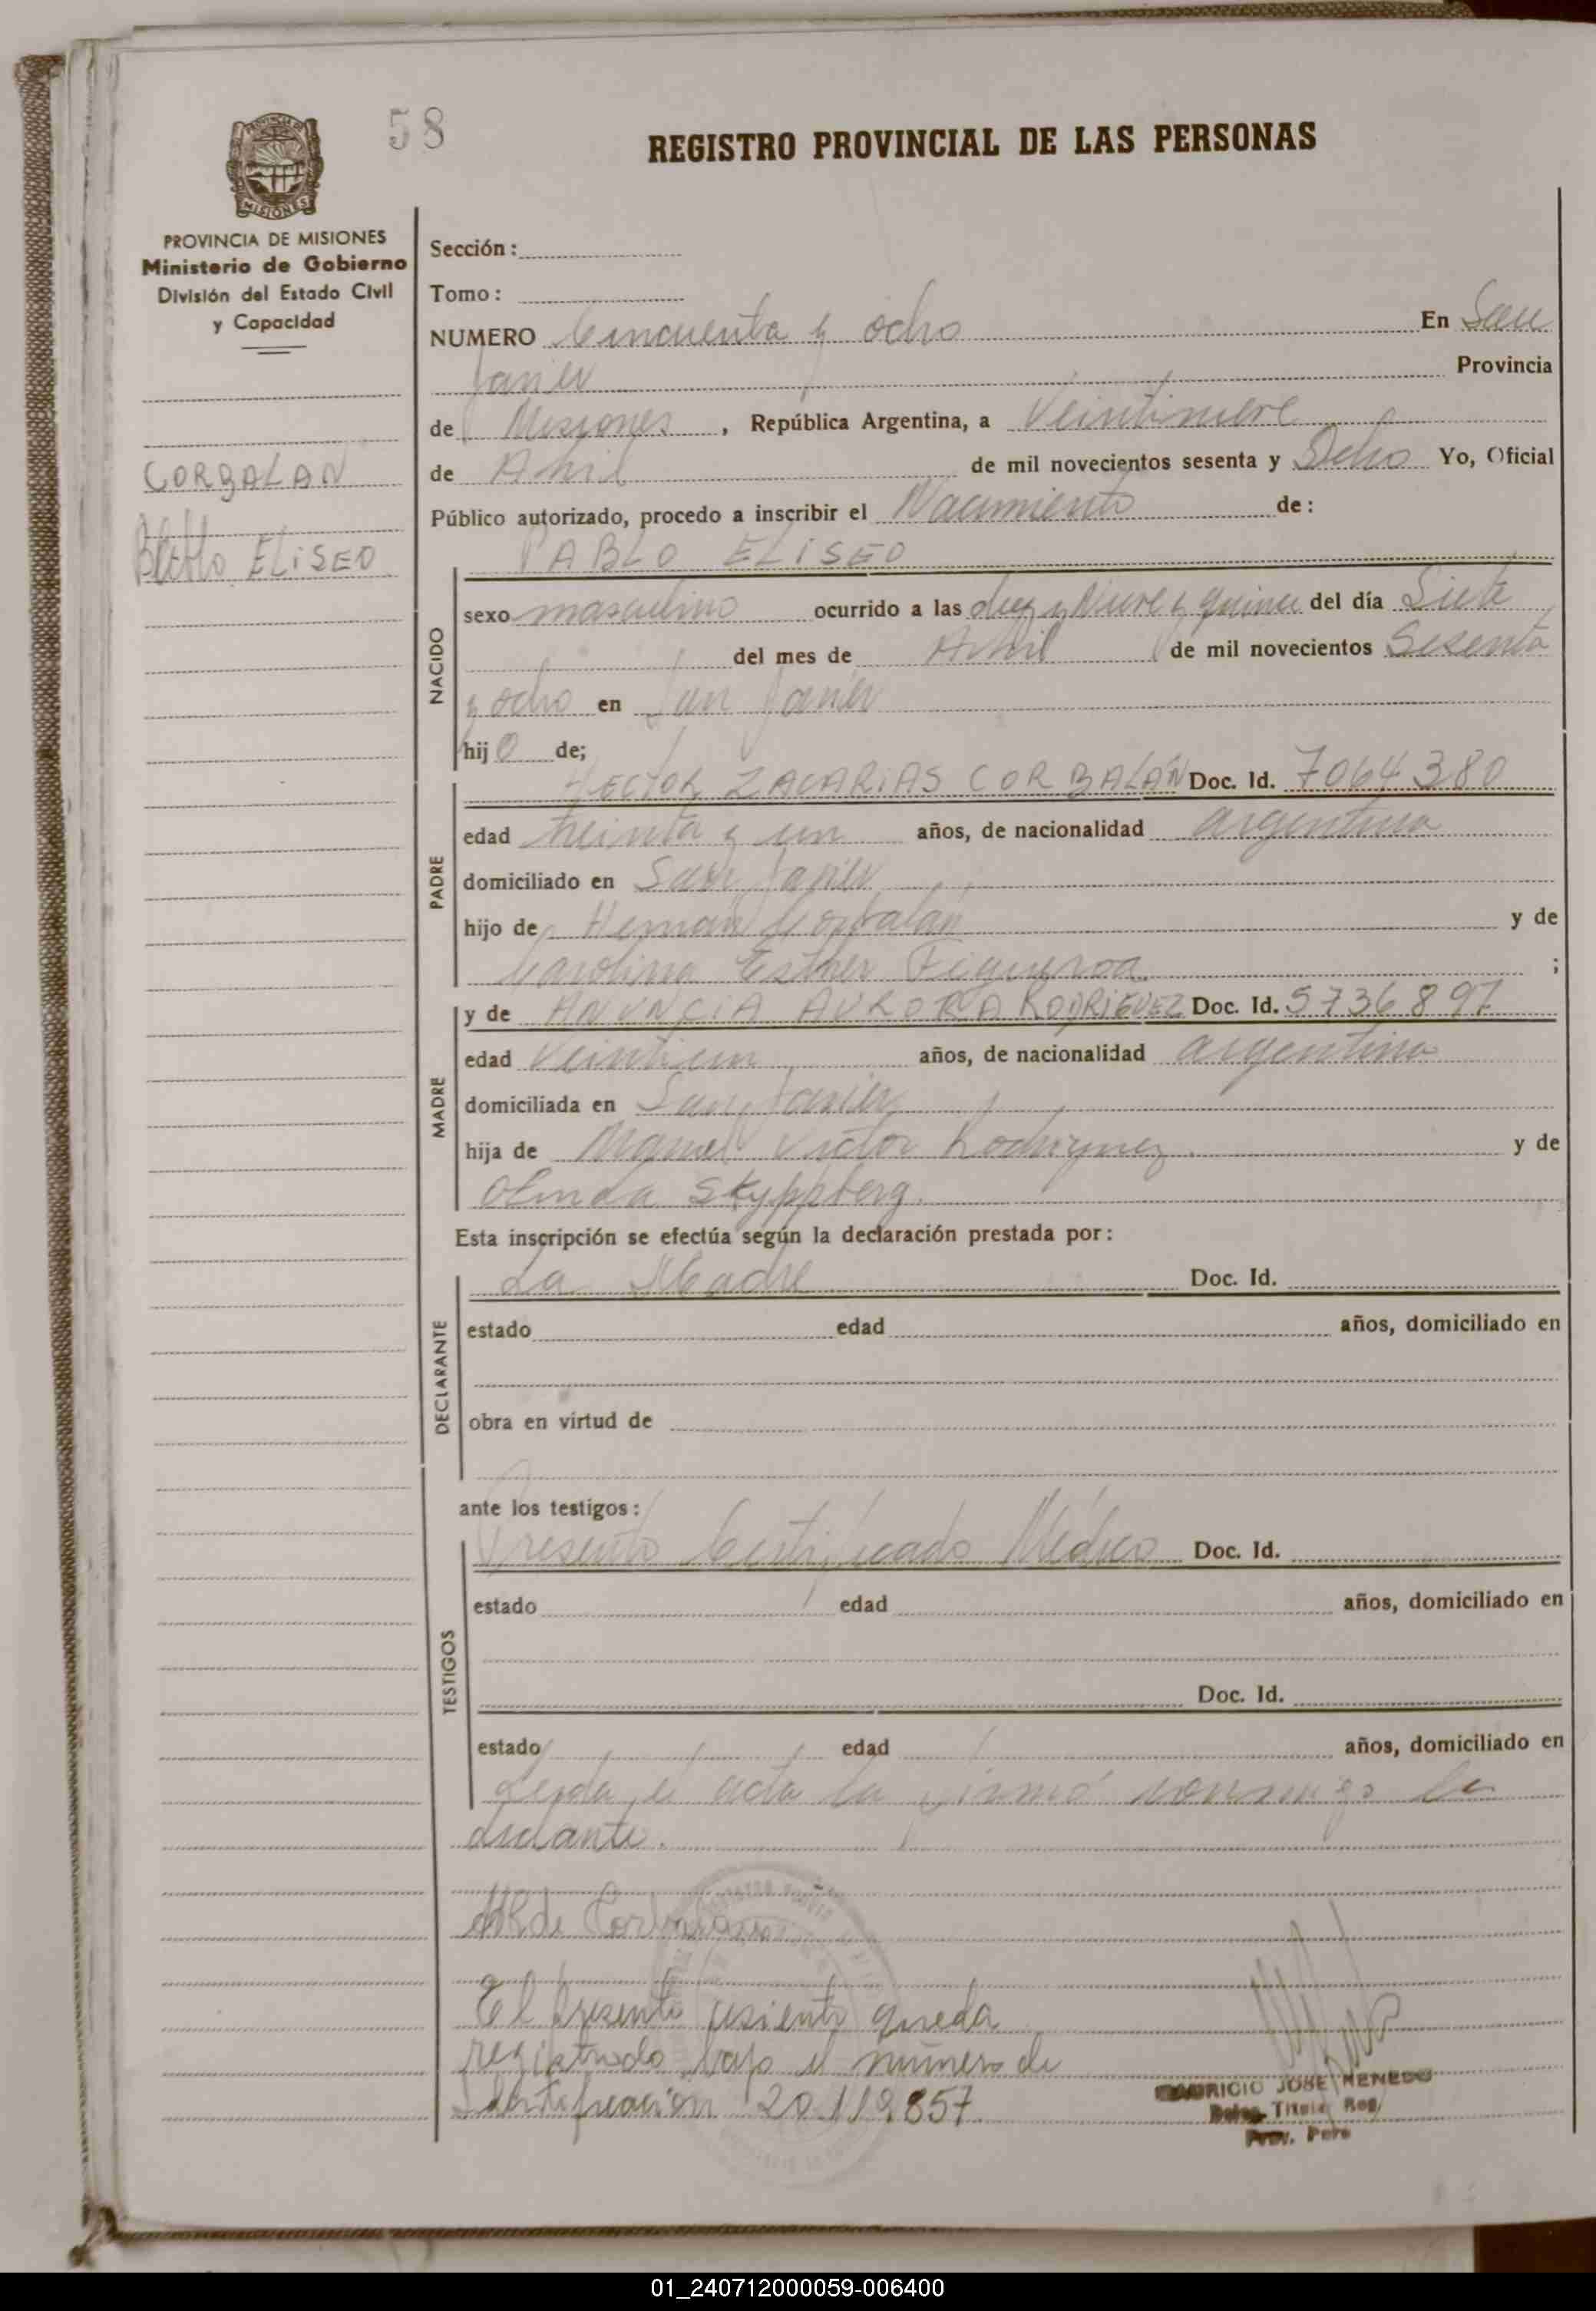 58
REGISTRO PROVINCIAL DE LAS PERSONAS
MISIONES
PROVINCIA DE MISIONES
Ministerio de Gobierno
División del Estado Civil
y Capacidad
CORBALAN
Pablo ELISEO
Sección:
Tomo:
NUMERO Cincuenta y ocho En San
Javier Provincia
de Misiones, República Argentina, a Veintinueve
de Abril de mil novecientos sesenta y Ocho Yo, Oficial
Público autorizado, procedo a inscribir el Nacimiento de:
PABLO ELISEO
NACIDO
sexo masculino ocurrido a las diez y Nueve y quince del día Siete
del mes de Abril de mil novecientos Sesenta
y ocho en San Javier
hijo de;
PADRE
HECTOR ZACARIAS CORBALÁN Doc. Id. 7064380
edad treinta y un años, de nacionalidad argentina
domiciliado en San Javier
hijo de Hernán Corbalán y de
Carolina Esther Figueroa;
MADRE
y de ANUNCIA AURORA RODRIGUEZ Doc. Id. 5736897
edad Veintiun años, de nacionalidad argentina
domiciliada en San Javier
hija de Manuel Victor Rodriguez y de
Olinda Skyppberg.
Esta inscripción se efectúa según la declaración prestada por:
DECLARANTE
La Madre Doc. Id.
estado edad años, domiciliado en
obra en virtud de
ante los testigos:
TESTIGOS
Presento Certificado Médico Doc. Id.
estado edad años, domiciliado en
Doc. Id.
estado edad años, domiciliado en
Leida el acta la firmó conmigo la
declarante.
de Corbalán
El presente asiento queda
registrado bajo el número de
Identificación 20.119.857
MAURICIO JOSE MENEDO
Deleg. Titular Reg.
Prov. Pers
01_240712000059-006400